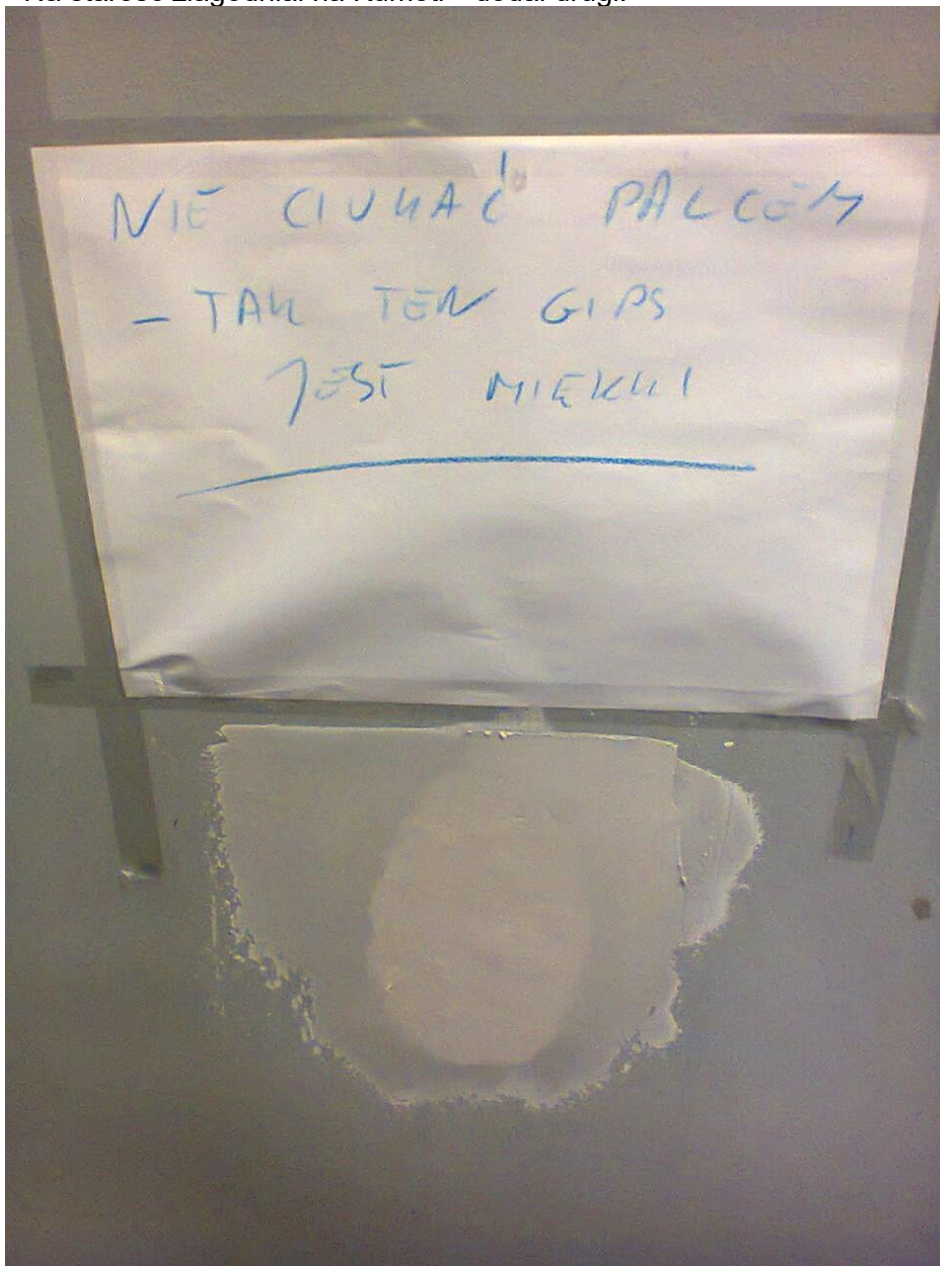 NIE CIUKAĆ PALCEM
- TAK TEN GIPS
JEST MIĘKKI